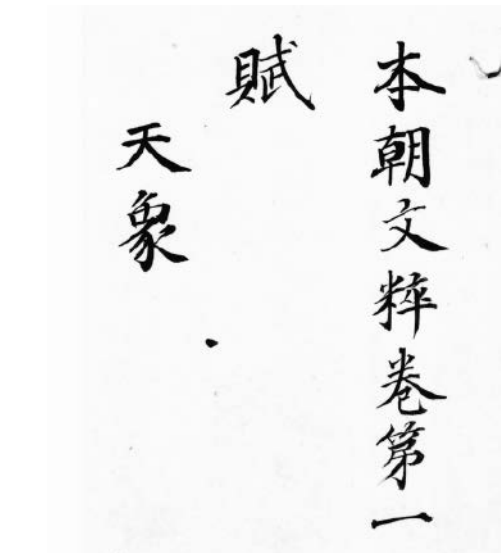 本朝文粹卷第一
賦
天象